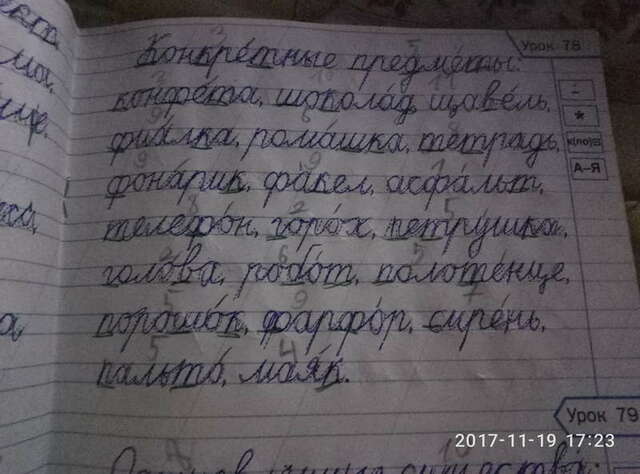 Урок 78
Конкре́тные предме́ты:
конфе́та, шокола́д, щаве́ль,
фиа́лка, рома́шка, тетра́дь,
фона́рик, фа́кел, асфа́льт,
телефо́н, горо́х, петру́шка,
голова́, ро́бот, полоте́нце,
порошо́к, фарфо́р, сире́нь,
пальто́, мая́к.
А-Я
Урок 79
2017-11-19 17:23